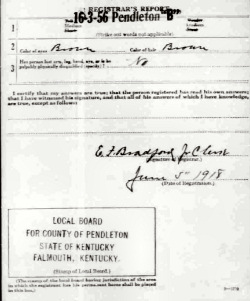 REGISTRAR'S REPORT
16-3-56 Pendleton B
1
(Strike out words not applicable)
2 Color of eyes Brown Color of hair Brown
3 Has person lost arm, leg, hand, eye, or is he
palpably physically disqualified (specify)? No
I certify that my answers are true; that the person registered has read his own answers;
that I have witnessed his signature, and that all of his answers of which I have knowledge,
are true, except as follows:
E. F. Bradford Jr Clerk
(Signature of Registrar)
June 5 - 1918
(Date of Registration)
LOCAL BOARD
FOR COUNTY OF PENDLETON
STATE OF KENTUCKY
FALMOUTH, KENTUCKY.
(Stamp of Local Board)
(The stamp of the local board having jurisdiction of the area
in which the registrant has his permanent home shall be placed
in this box.)